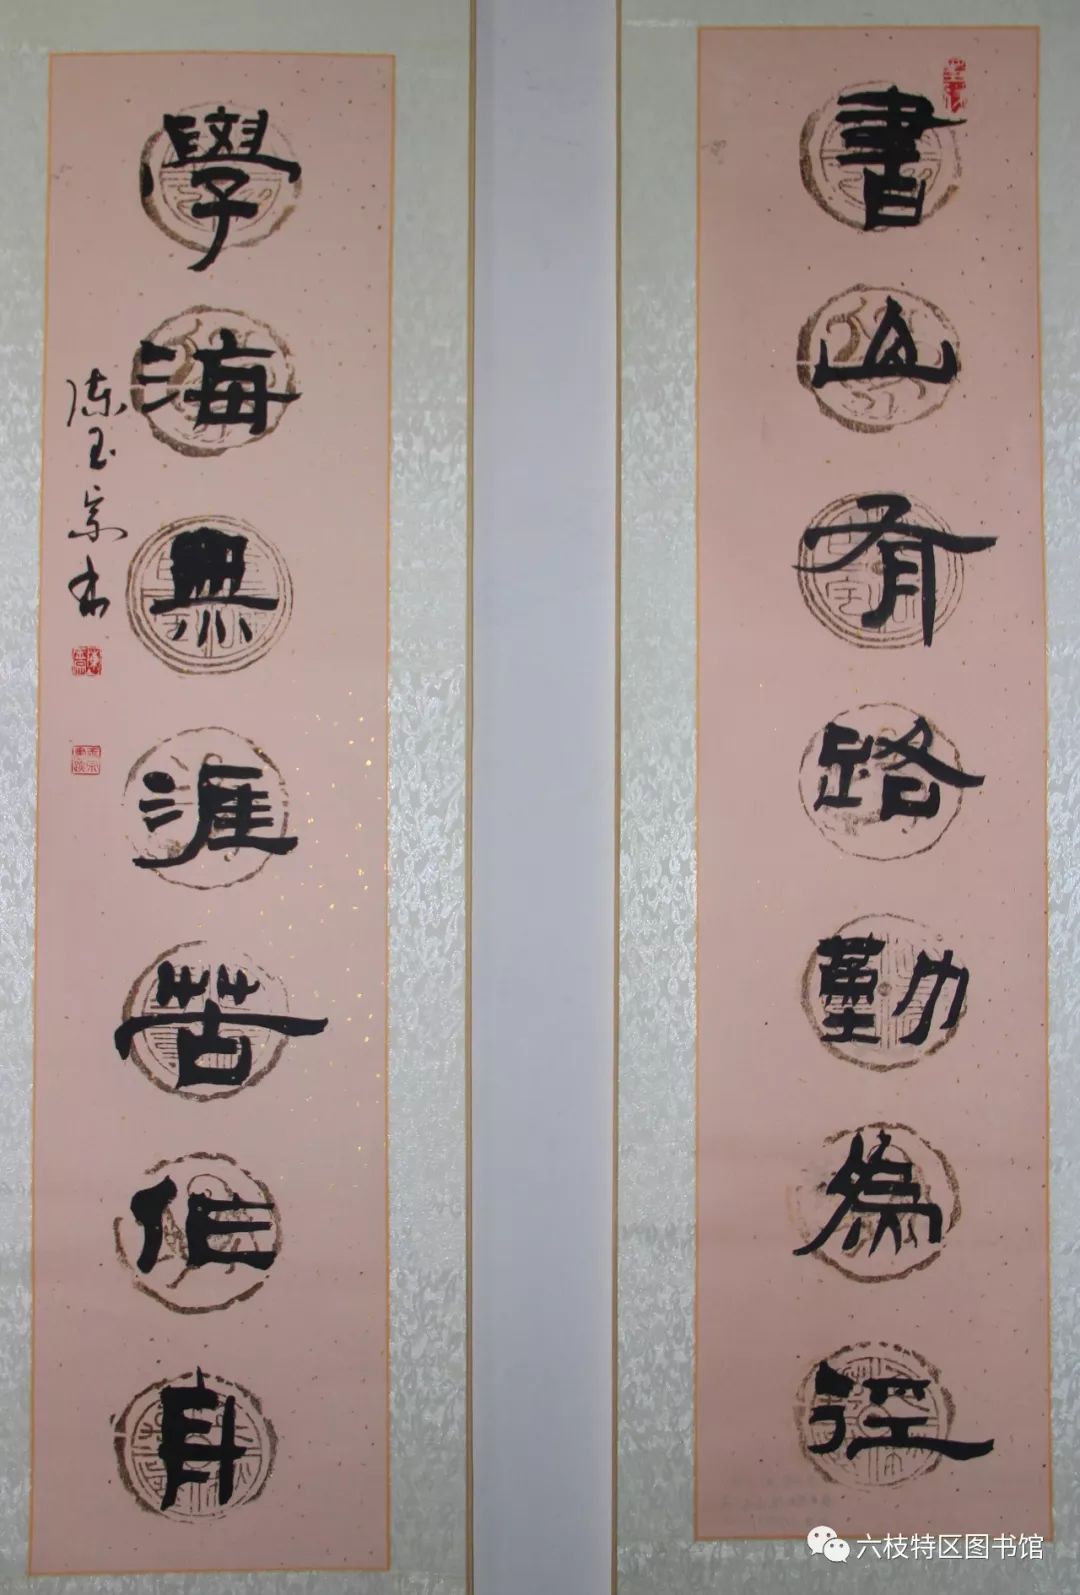 書山有路勤為徑
學海無涯苦作舟
陈玉书
六枝特区图书馆